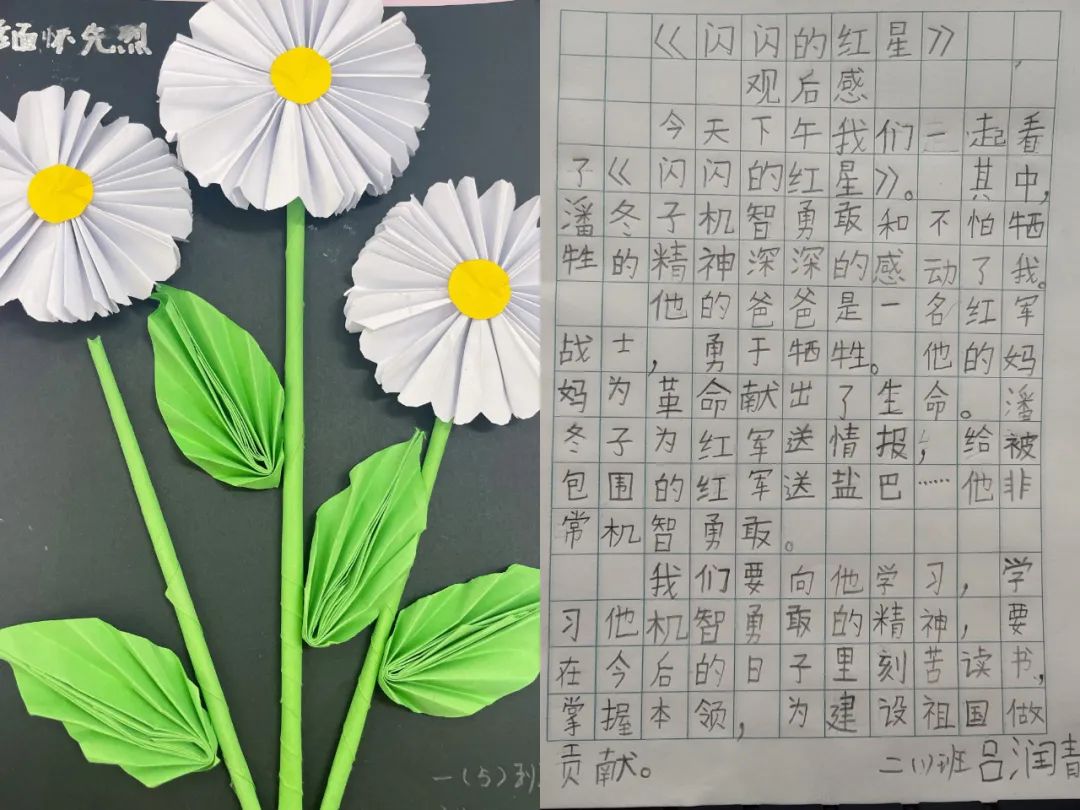 缅怀先烈
一(5)
《闪闪的红星》
观后感
今天下午我们一起看
了《闪闪的红星》。其中,
潘冬子机智勇敢和不怕牺
牲的精神深深的感动了我。
他的爸爸是一名红军
战士,勇于牺牲。他的妈
妈为革命献出了生命。潘
冬子为红军送情报,给被
包围的红军送盐巴……他非
常机智勇敢。
我们要向他学习,学
习他机智勇敢的精神,要
在今后的日子里刻苦读书,
掌握本领,为建设祖国做
贡献。
二(1)班吕润青